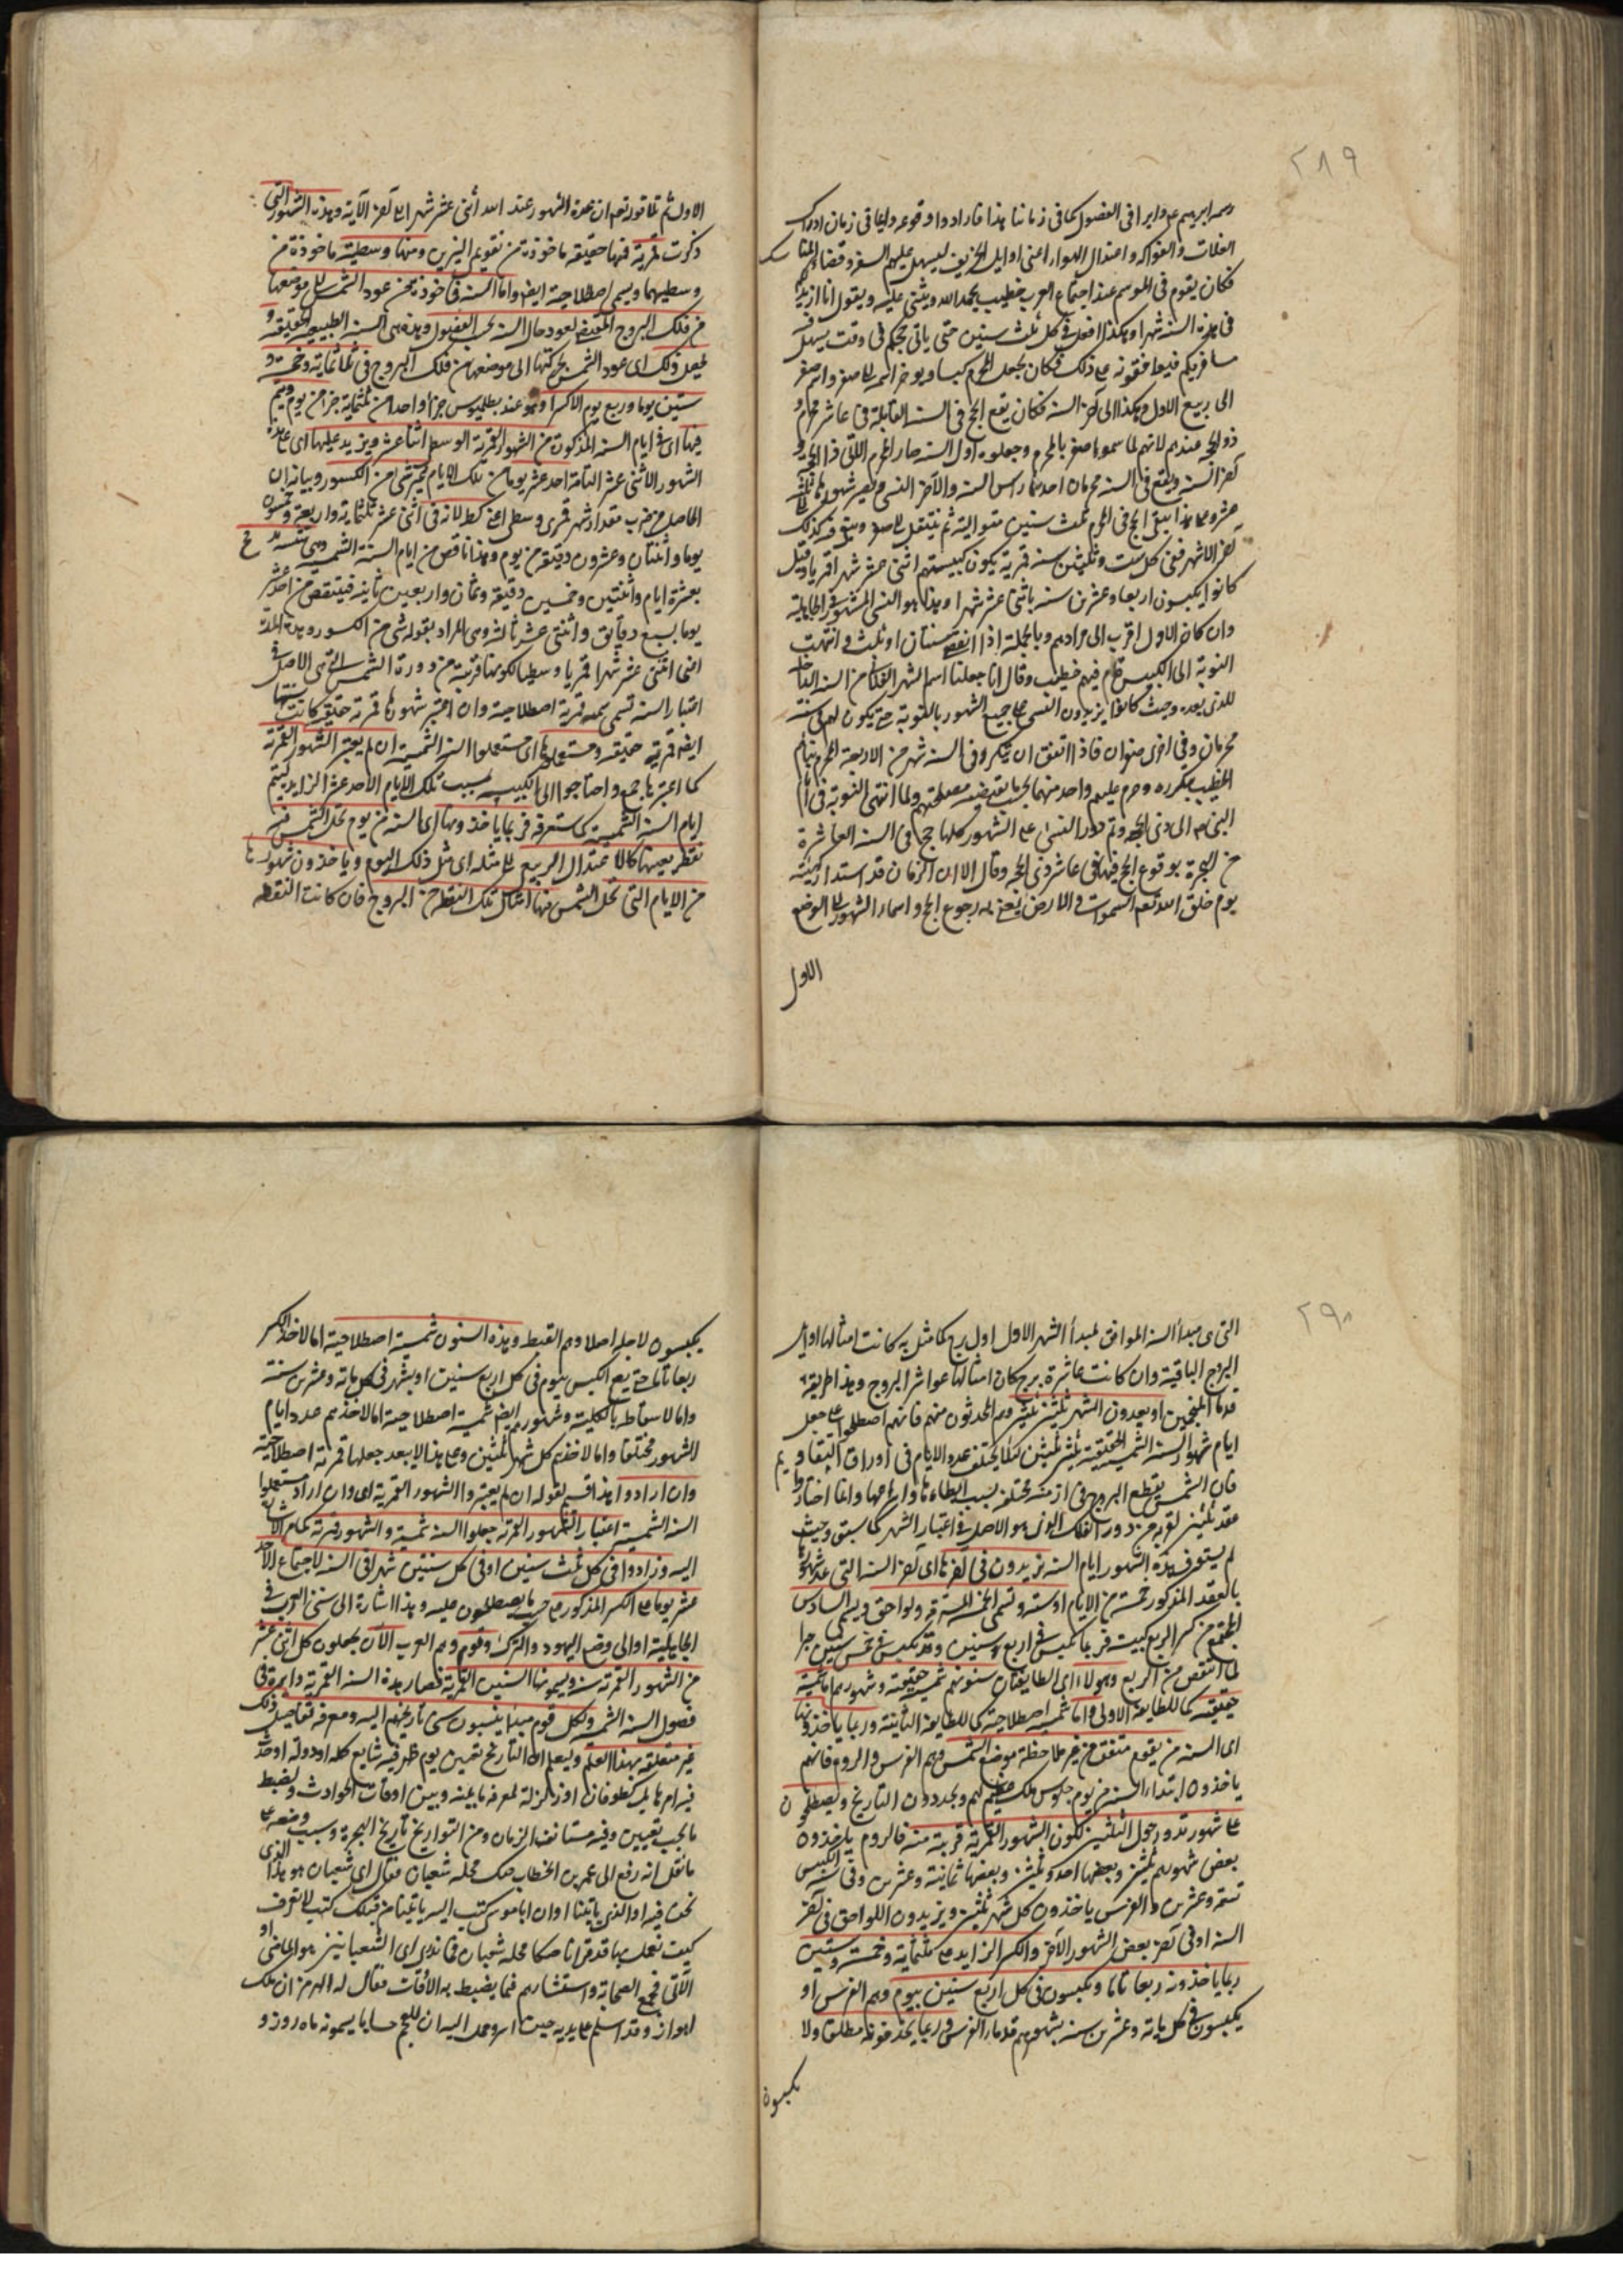 ٢٨٩
رسم ابرهيم ع م دايرا فى الفصول كما فى زماننا هذا فارادوا وقوعه دايما فى زمان ادراك
الغلات والفواكه واعتدال الهواء اعنى اوايل الخريف ليسهل عليهم السفر وقضاء المناسك
فكان يقوم فى الموسم عند اجتماع العرب خطيب يحمد الله ويثنى عليه ويقول انا ازيد لكم
فى هذه السنة شهرا وهكذا افعل فى كل ثلث سنين حتى ياتى حجكم فى وقت يسهل فيه
مسافرتكم فيوافقونه على ذلك فكان يجعل المحرم كبيسا ويؤخر اسمه الى صفر واسم صفر
الى ربيع الاول وهكذا الى آخر السنة فكان يقع الحج فى السنة القابلة فى عاشر محرم وهو
ذو الحجة عندهم لانهم لما سموا صفر بالمحرم وجعلوه اول السنة صار المحرم الاتى ذا الحجة و
آخر السنة ويقع فى السنة محرمان احدهما راس السنة والآخر النسى وتصير شهورها ثلثة
عشر وعلى هذا يبقى الحج فى المحرم ثلث سنين متوالية ثم ينتقل الى صفر ويبقى فيه كذلك
آخر الاشهر ففى كل ست وثلثين سنة قمرية يكون كبيستهم اثنى عشر شهرا قمريا وقيل
كانوا يكبسون اربعا وعشرين سنة باثنى عشر شهرا وهذا هو النسى المشهور فى الجاهلية
وان كان الاول اقرب الى مرادهم وبالجملة اذا انقضى سنتان او ثلث وانتهت
النوبة الى الكبيس قام فيهم خطيب وقال انا جعلنا اسم الشهر الفلانى من السنة الداخلة
للذى بعده وحيث كانوا يزيدون النسى على جميع الشهور بالنوبة حتى يكون لهم فى سنة
محرمان وفى اخرى صفران فاذا اتفق ان يتكرر فى السنة شهر من الاربعة الحرم نبأهم
الخطيب بتكرره وحرم عليهم واحد منهما بحسب ما يقتضيه مصلحتهم ولما انتهى النوبة فى ايام
النبى ع م الى ذى الحجة وتم دور النسى على الشهور كلها حج فى السنة العاشرة
من الهجرة بوقوع الحج فيها فى عاشر ذى الحجة وقال الا ان الزمان قد استدار كهيئته
يوم خلق الله تعه السموات والارض يعنى به رجوع الحج واسماء الشهور الى الوضع
الاول
الاول ثم تلا قوله تعه ان عدة الشهور عند الله اثنى عشر شهرا الى آخر الآية وهذه الشهور التى
ذكرت قمرية فمنها حقيقية ماخوذة من تقويم النيرين ومنها وسطية ماخوذة من
وسطيهما ويسمى اصطلاحية ايضا واما السنة فماخوذة من عود الشمس الى موضعها
من فلك البروج المقتضى لعود حال السنة بحسب الفصول وهذه هى السنة الطبيعية الحقيقية و
يحصل ذلك اى عود الشمس بحركتها الى موضعها من فلك البروج فى ثلثمائة وخمسة و
ستين يوما وربع يوم الا كسرا وهو عند بطلميوس جزءا واحد من ثلثمائة جزء من يوم ويتم
فيها اى فى ايام السنة المذكورة من الشهور القمرية الوسطى اثنا عشر ويزيد عليها اى على هذه
الشهور الاثنى عشر التامة احد عشر يوما من تلك الايام بشىء من الكسور وبيانه ان
الحاصل من ضرب مقدار شهر قمرى وسطى اعنى كط لا نه فى اثنى عشر ثلثمائة واربعة وخمسون
يوما واثنتان وعشرون دقيقة من يوم وهذا ناقص من ايام السنة الشمسية
بعشرة ايام واثنتين وخمسين دقيقة وثمان واربعين ثانية فينقص من احد عشر
يوما بسبع دقايق واثنتى عشر ثانية وهى المراد بقوله بشىء من الكسور وهذه المدة
اعنى اثنى عشر شهرا قمريا وسطيا لكونها قريبة من دورة الشمس التى هى الاصل فى
اعتبار السنة تسمى سنة قمرية اصطلاحية وان اعتبر شهورها قمرية حقيقية كانت سنتها
ايضا قمرية حقيقية ومستعملوها اى مستعملوا السنة الشمسية ان لم يعتبر الشهور القمرية
كما اعتبرها جمع واحتاجوا الى الكبيسة بسبب تلك الايام الاحد عشر الزايدة ليتم
ايام السنة الشمسية كما ستعرفه فربما ياخذونها اى السنة من يوم تحل الشمس فيه
نقطة بعينها كالاعتدال الربيعى الى مثله اى مثل ذلك اليوم وياخذون شهورها
من الايام التى تحل الشمس فيها امثال تلك النقطة من البروج فان كانت النقطة
٢٩٠
التى هى مبدأ السنة الموافق لمبدأ الشهر الاول اول برج كما مثل به كانت امثالها اوايل
البروج الباقية وان كانت عاشرة برج كان امثالها عواشر البروج وهذا طريقة
قدماء المنجمين او يعدون الشهر ثلثين ثلثين وهم المحدثون منهم فانهم اصطلحوا على جعل
ايام شهور السنة الشمسية الحقيقية ثلثين ثلثين لئلا يختلف عدد الايام فى اوراق التقاويم
فان الشمس يقطع البروج فى ازمنة مختلفة بسبب ابطائها واسراعها وانما اختاروا
عقد ثلثين لقربه من دور الفلك الذى هو الاصل فى اعتبار الشهر كما سبق وحيث
لم يستوف بهذه الشهور ايام السنة يزيدون فى آخرها اى آخر السنة التى عدد شهورها
بالعقد المذكور خمسة من الايام او ستة وتسمى الخمسة المسترقة ولواحق ويسمى السادس
المجتمع من كسر الربع كبيسة فربما كبس فى اربع سنين وقد يكبس فى خمس سنين جبرا
لما انتقص من الربع وهؤلاء اى الطايفتان سنوهم شمسية حقيقية وشهورهم اما شمسية
حقيقية كما للطايفة الاولى واما شمسية اصطلاحية كما للطايفة الثانية وربما ياخذونها
اى السنة من يوم متفق من غير ملاحظة موضع الشمس وهم الفرس والروم فانهم
ياخذون ابتداء السنة من يوم جلوس ملك عظيم لهم ويجددون التاريخ ويصطلحون
على شهور تدور حول الثلثين لكون الشهور القمرية قريبة منه فالروم ياخذون
بعض شهورهم ثلثين وبعضها احد وثلثين وبعضها ثمانية وعشرين وفى سنة الكبيس
تسعة وعشرين والفرس ياخذون كل شهر ثلثين ويزيدون اللواحق فى آخر
السنة او فى آخر بعض الشهور الآخر والكسر الزايد على ثلثمائة وخمسة وستين
ربما ياخذونه ربعا تاما ويكبسون فى كل اربع سنين بيوم وهم الفرس او
يكبسون فى كل مائة وعشرين سنة بشهر وهم قدماء الفرس وربما يحذفونه مطلقا ولا
يكبسون
يكبسون لاجله اصلا وهم القبط وهذه السنون شمسية اصطلاحية اما لاخذ الكسر
ربعا تاما حتى يقع الكبس بيوم فى كل اربع سنين او بشهر فى كل مائة وعشرين سنة
واما لاسقاطه بالكلية وشهورهم ايضا شمسية اصطلاحية اما لاخذهم عدد ايام
الشهور مختلفا واما لاخذهم كل شهر ثلثين وعلى هذا لا يبعد جعلها قمرية اصطلاحية
وان ارادوا هذا قسيم لقوله ان لم يعتبروا الشهور القمرية اى وان اراد مستعملوا
السنة الشمسية اعتبار الشهور القمرية جعلوا السنة شمسية والشهور قمرية كما مر الاشارة
اليه وزادوا فى كل ثلث سنين او فى كل سنتين شهرا فى السنة لاجتماع الاحد
عشر يوما مع الكسر المذكور على حسب ما يصطلحون عليه وهذا اشارة الى سنى العرب فى
الجاهلية او الى وضع اليهود والترك وقوم وهم العرب الآن يجعلون كل اثنى عشر
من الشهور القمرية سنة ويسمونها السنين القمرية فصار هذه السنة القمرية دايرة فى
فصول السنة الشمسية ولكل قوم مبدأ ينسبون سنى تاريخهم اليه ومعرفة تفاصيل ذلك
غير متعلقة بهذا العلم وليعلم ان التاريخ تعيين يوم ظهر فيه شايع كملة او دولة او حدث
فيه امر هايل كطوفان او زلزلة لمعرفة ما بينه وبين اوقات الحوادث ولضبط
ما يجب تعيين وقته فى مستانف الزمان ومن التواريخ تاريخ الهجرة وسبب وضعه على
ما نقل انه رفع الى عمر بن الخطاب صك محله شعبان فقال اى شعبان هو هذا الذى
نحن فيه او الذى ياتينا او ان ابا موسى كتب اليه ياتينا من قبلك كتب لا نعرف
كيف نعمل بها قد قرانا صكا محله شعبان فما ندرى اى الشعبانين هو الماضى او
الآتى فجمع الصحابة واستشارهم فيما يضبط به الاوقات فقال له الهرمزان ملك
اهواز وقد اسلم على يديه حين اسر وحمل اليه ان للعجم حسابا يسمونه ماه روز و